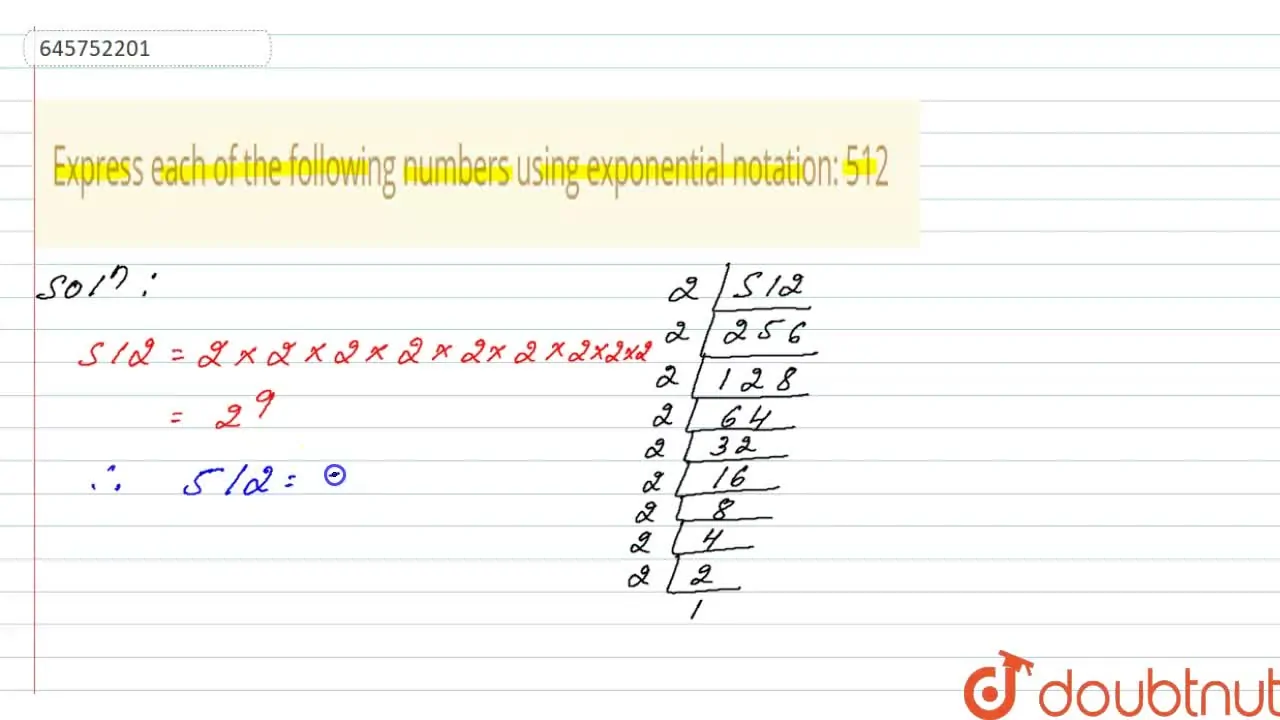 645752201
Express each of the following numbers using exponential notation: 512
Solⁿ :
512 = 2 × 2 × 2 × 2 × 2 × 2 × 2 × 2 × 2
= 2⁹
∴ 512 =
2 | 512
2 | 256
2 | 128
2 | 64
2 | 32
2 | 16
2 | 8
2 | 4
2 | 2
1
doubtnut